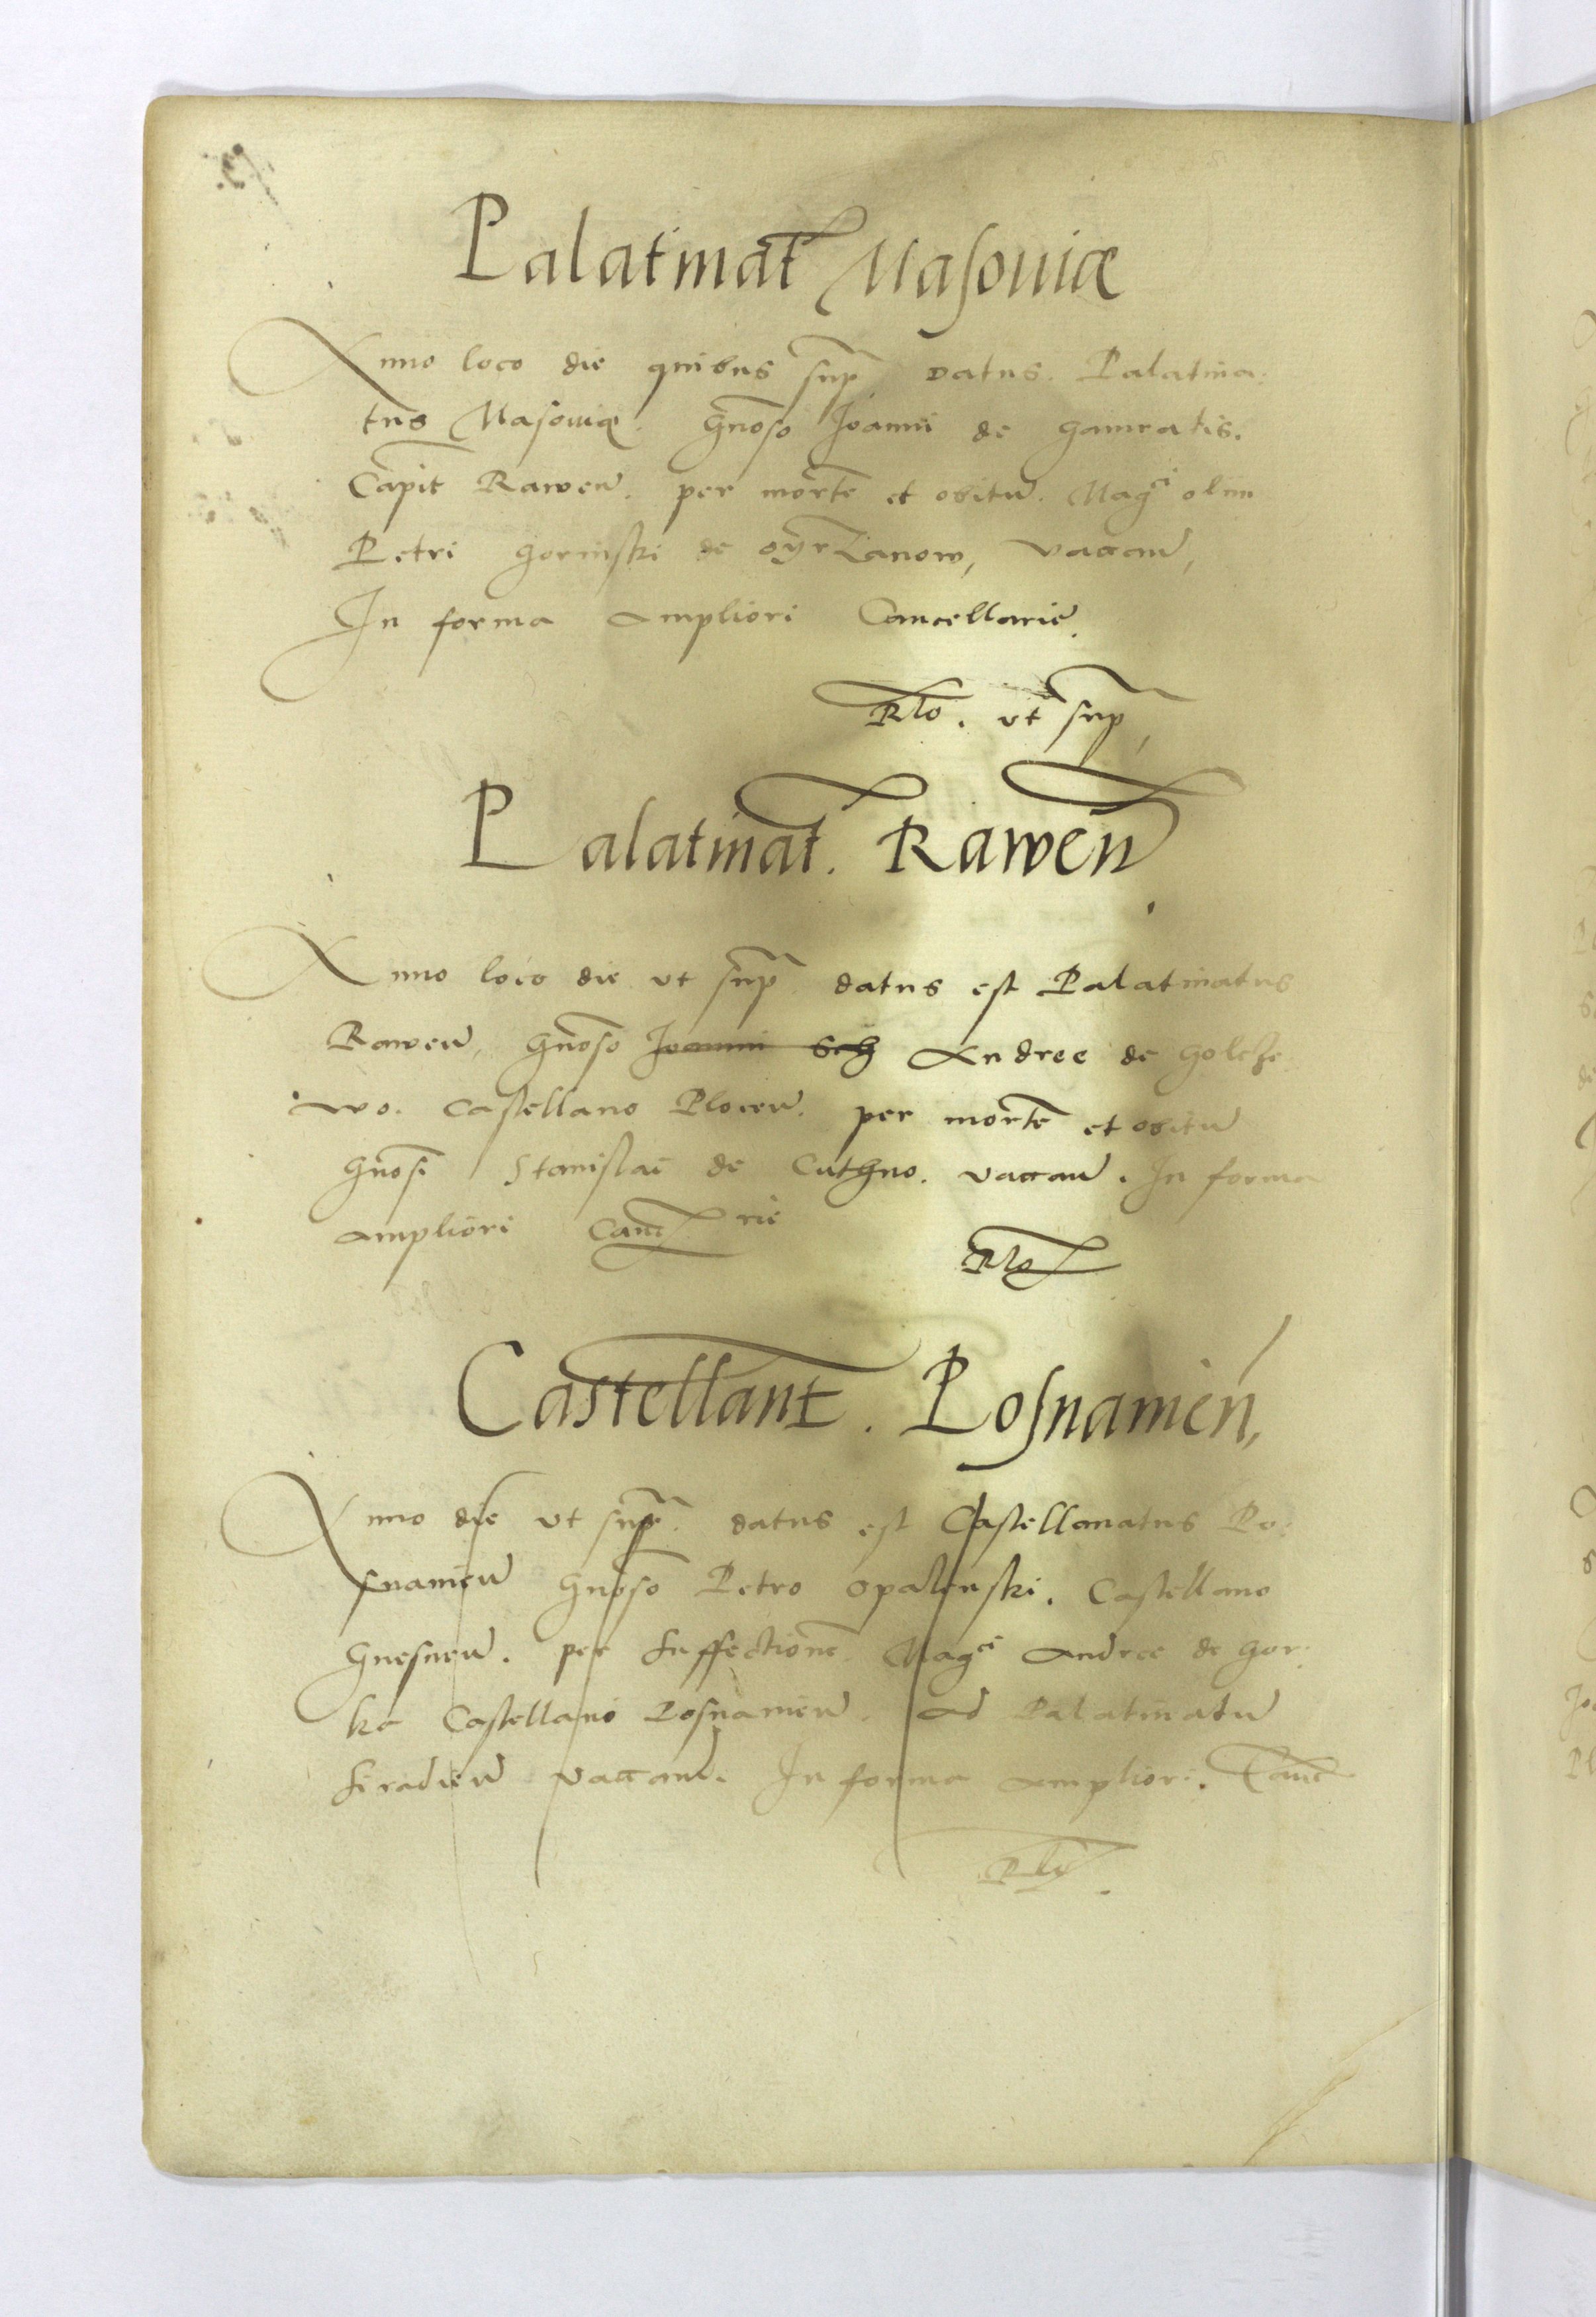 Palatinat Masouiæ
Anno loco die quibus sup datus. Palatina:
tus Masouiæ. Gnoso Joanni de gamratis.
Capit Rawen. per morte et obitu. Magci olim
Petri gorinski de oyrzanow, vaccan,
In forma ampliori Cancellarie.
Rlo. vt sup,
Palatinat. Rawen
Anno loco die vt sup datus est Palatinatus
Rawen, Gnoso Joanni Andree de Golche
wo. Castellano Plocen. per morte et obitu
Gnosi Stanislai de Cuthno. vaccan. In forma
ampliori Canc rie
Rlo
Castellant. Posnamen,
Anno die vt sup. datus est Castellanatus Po:
snanien Gnoso Petro opalenski. Castellano
Gnesnen. per suffectione. Magci Andree de Gor:
ka Castellani Posnanien. ad Palatinatu
siradien vaccan. In forma ampliori. Canc